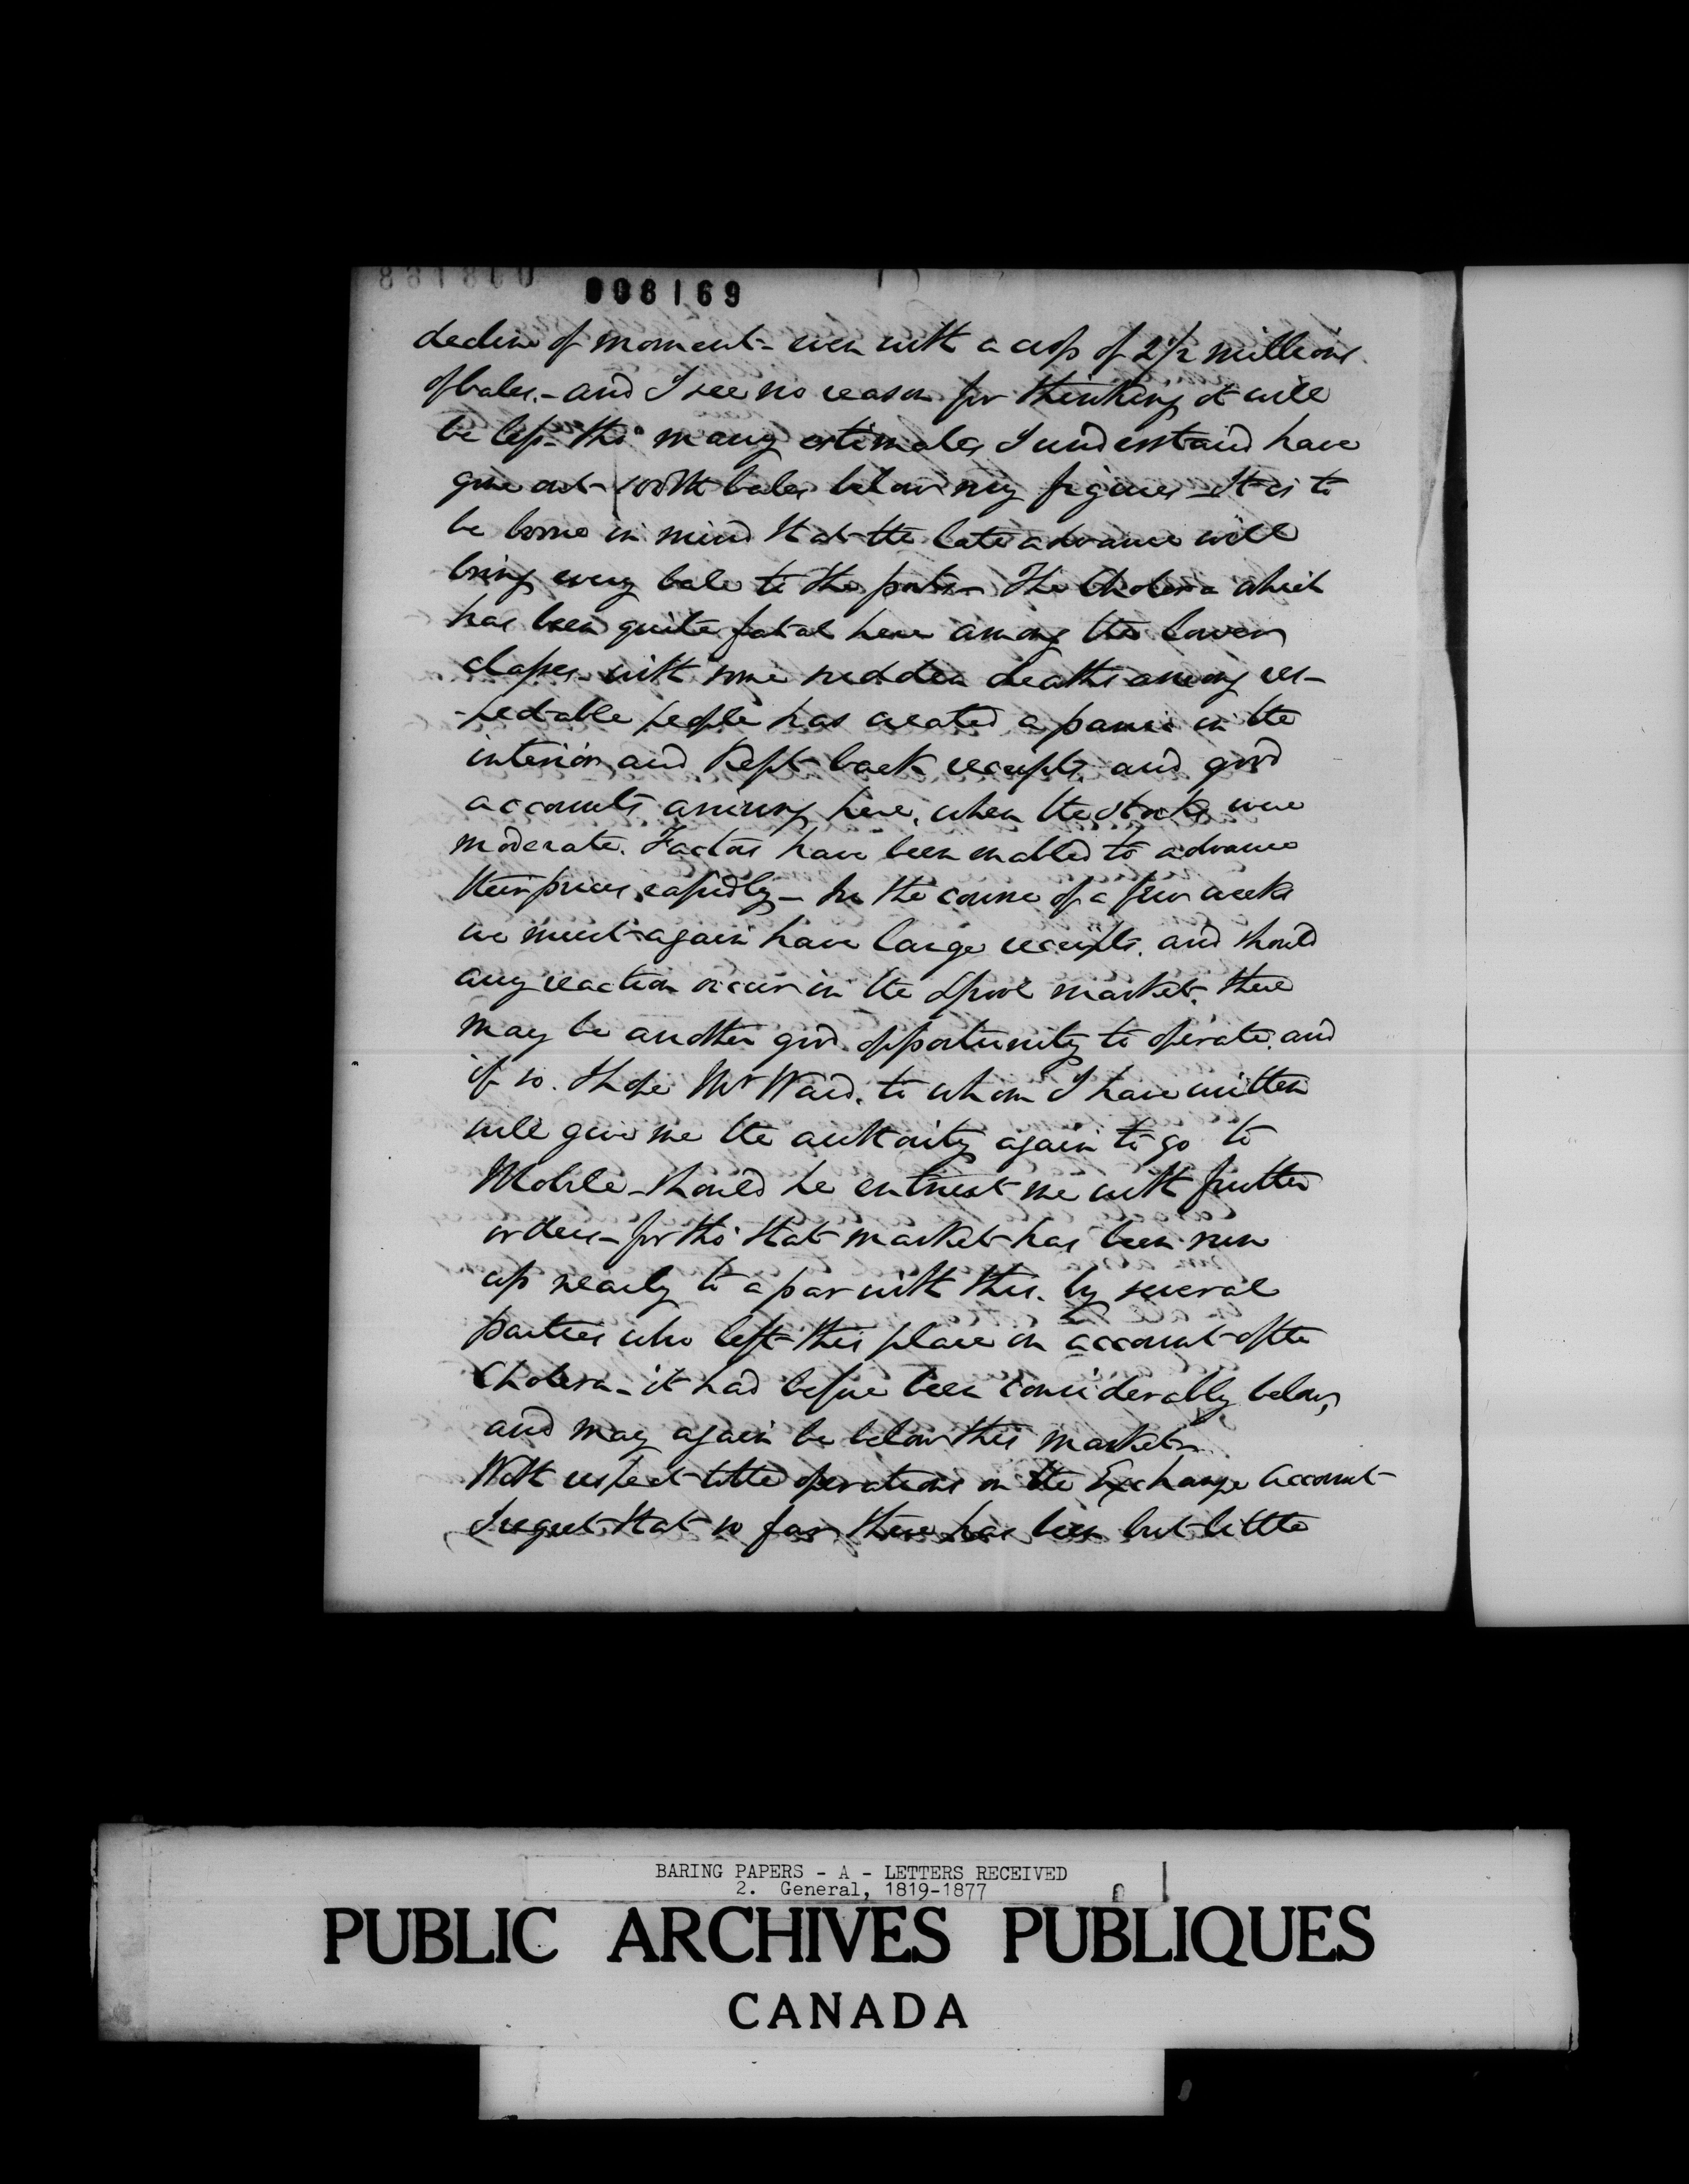 008169
decline of moment - even with a crop of 2 1/2 millions
of bales. - and I see no reason for thinking it will
be less - tho' many estimates I understand have
gone out - 100 M bales below my figures - It is to
be borne in mind that the late advance will
bring every bale to the ports - The Cholera which
has been quite fatal here among the lower
classes - with some sudden deaths among res-
-pectable people has created a panic in the
interior, and kept back receipts. and good
accounts arriving here, when the stocks were
moderate. Factors have been enabled to advance
their prices rapidly - In the course of a few weeks
we must again have large receipts. and should
any reaction occur in the Lpool market, there
may be another good opportunity to operate. and
if so. I hope Mr Ward. to whom I have written
will give me the authority again to go to
Mobile - should he entrust me with further
orders - for tho' that market has been run
up nearly to a par with this. by several
parties who left this place on account of the
Cholera - it had before been considerably below,
and may again be below this market -
With respect to the operations on the Exchange Account -
I regret that so far there has been but little
BARING PAPERS - A - LETTERS RECEIVED
2. General, 1819-1877
PUBLIC ARCHIVES PUBLIQUES
CANADA